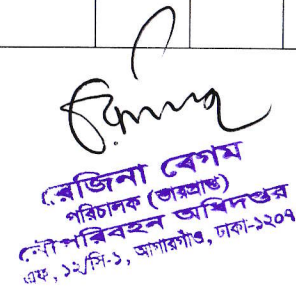 রেজিনা বেগম
পরিচালক (ভারপ্রাপ্ত)
নৌপরিবহন অধিদপ্তর
এফ, ১২/সি-১, আগারগাঁও, ঢাকা-১২০৭